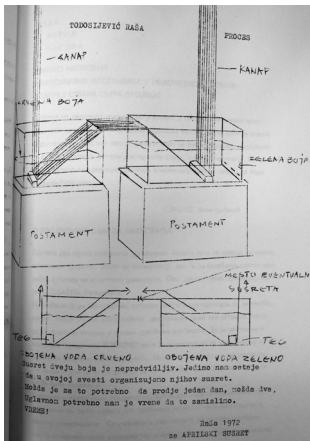 TODOSIJEVIĆ RAŠA
PROCES
KANAP
KANAP
CRVENA BOJA
ZELENA BOJA
POSTAMENT
POSTAMENT
MESTO EVENTUALN
SUSRETA
TEG
TEG
OBOJENA VODA CRVENO
OBOJENA VODA ZELENO
Susret dveju boja je nepredvidljiv. Jedino nam ostaje
da u svojoj svesti organizujemo njihov susret.
Možda je za to potrebno da prodje jedan dan, možda dva.
Uglavnom potrebno nam je vreme da to zamislimo.
VREME!
Raša 1972
za APRILSKI SUSRET